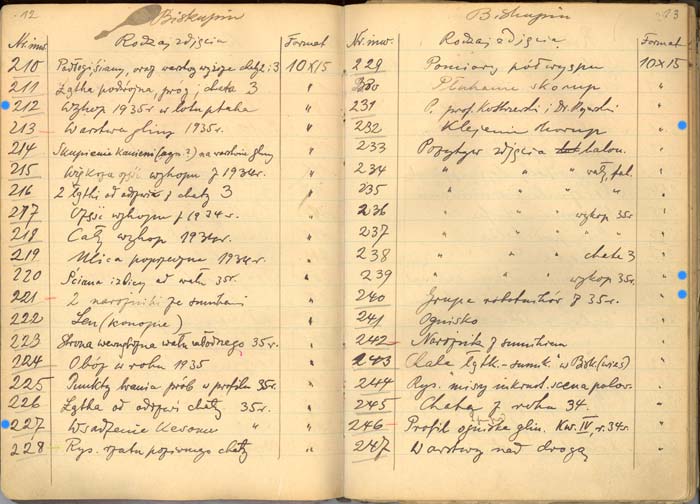 12
Biskupin
Nr. inw. Rodzaj zdjęcia Format
210 Podłogi, ściany, oraz warstwy wyższe chaty 1 i 3 10x15
211 Łątka podwójna, próg, chata 3 "
212 Wykop 1935 r. w lotu ptaka "
213 Warstwa gliny 1935 r. "
214 Skupienie kamieni na warstwie gliny "
215 Większa część wykopu z 1934 r. "
216 2 łątki od odrzwi z chaty 3 "
217 Część wykopu z 1934 r. "
218 Cały wykop 1934 r. "
219 Ulica poprzeczna 1934 r. "
220 Ściana izbicy od wału 35 r. "
221 2 narożniki ze sumikami "
222 Len (konopie) "
223 Strona wewnętrzna wału 35 r. "
224 Obóz w roku 1935 "
225 Punkty brania prób w profilu 35 r. "
226 Łątka od odrzwi chaty 35 r. "
227 Wsadzenie kesonu " "
228 Rys. rzutu poziomego chaty "
Biskupin 13
Nr. inw. Rodzaj zdjęcia Format
229 Pomiary półwyspu 10x15
230 Płukanie skorup "
231 P. prof. Kostrzewski i Dr. "
232 Klejenie skorup "
233 Pozytyw zdjęcia balon. "
234 " " " wał, pal. "
235 " " " " "
236 " " " wykop 35 r "
237 " " " " "
238 " " " chata 3 "
239 " " " wykop 35 r. "
240 Grupa robotników z 35 r. "
241 Ognisko "
242 Narożnik z sumikiem "
243 Chata "łątk.-sumik." w Bisk. (wieś) "
244 Rys. misy inkrust. scena polow. "
245 Chata z roku 34. "
246 Profil ogniska glin. Kw. IV, r. 34 r. "
247 Warstwy nad drogą "